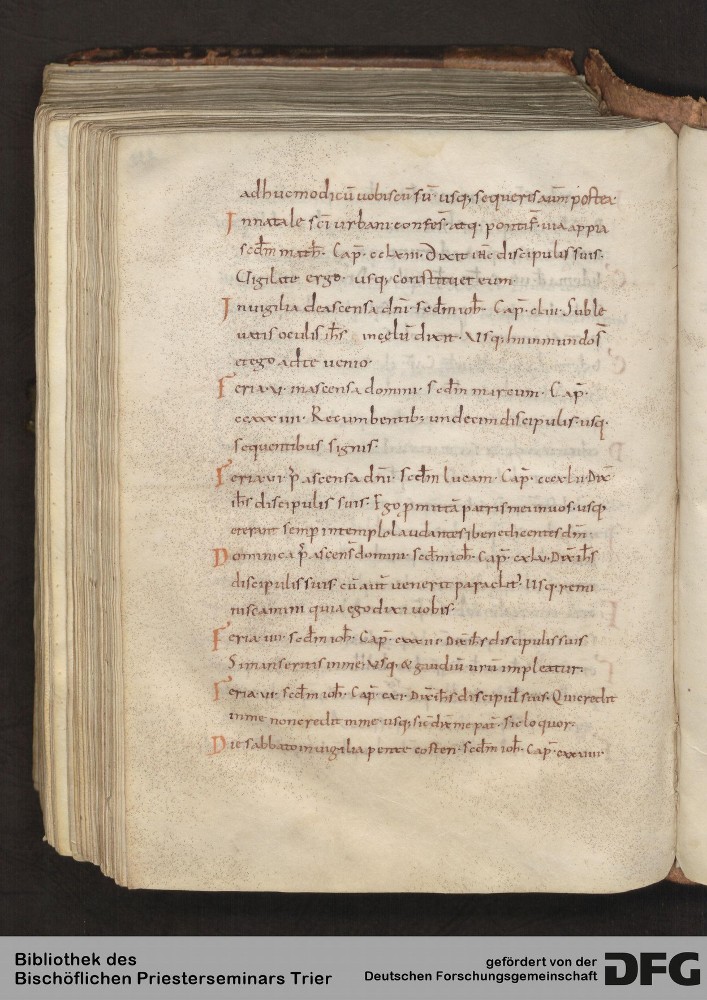 adhuc modicū uobiscū sū · usq; sequeris aūm postea
In natale scī urbani confes̄ · atq; pontif̄ · uia appia
secdm math̄ · Cap̄ · cclxiii · Dixit ihc discipulis suis ·
Uigilate ergo · usq; constituet eum ·
In uigilia de ascensa dn̄i · secdm ioh̄ · Cap̄ · clii · Suble
uatis oculis ih̄s in cęlū dixit · Usq; hi in mundo s̄
et ego ad te uenio ·
Feria · vi · in ascensa domini · secdm marcum · Cap̄ ·
ccxxxiiii · Recumbentib; undecim discipulis · usq;
sequentibus signis ·
Feria · vi · p̄ ascensa dn̄i · secdm lucam · Cap̄ · cccxlii · Dix̄
ih̄s discipulis suis · Ego ꝓmittā patris mei in uos · usq;
et erant semp̄ in templo laudantes & benedicentes dm̄
Dominica p̄ ascens̄ domini · secdm ioh̄ · Cap̄ · cxlv · Dix̄ ih̄s
discipulis suis · cū aut̄ uenerit paraclit᾽ · Usq; remi
niscamini quia ego dixi uobis ·
Feria · iiii · secdm ioh̄ · Cap̄ · cxxxii · Dix̄ ih̄s discipulis suis
Si manseritis in me · Usq; & gaudiū urūm impleatur ·
Feria · vi · secdm ioh̄ · Cap̄ · cxi · Dix̄ ih̄s discipul̄ suis · Qui credit
in me non credit in me · usq; sic dix̄ me pat̄ · sic loquor ·
Die sabbato in uigilia pentecosten · secdm ioh̄ · Cap̄ · cxxiiii ·
Bibliothek des
Bischöflichen Priesterseminars Trier
gefördert von der
Deutschen Forschungsgemeinschaft
DFG